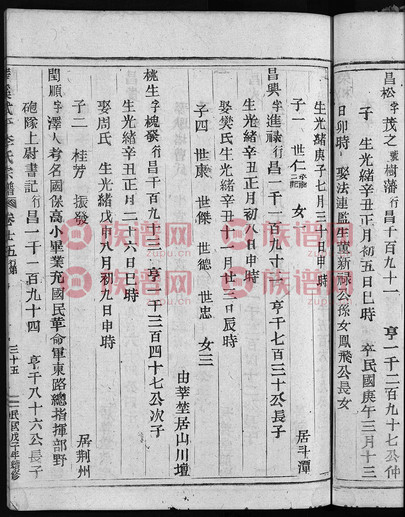 昌松字茂之號樹藩行昌千百九十一 亨一千二百九十七公仲
子 生光緒辛丑正月初五日巳時 卒民國庚午三月十三
日卯時 娶法連監生董新禄公孫女鳳飛公長女
生光緒庚子七月三 申時
子一 世仁 女一 居斗潭
昌興字進禄行昌一千一百九十二 亨千七百三十公長子
生光緒辛丑正月初八日申時
娶樊氏生光緒辛丑十一月廿三日辰時
子四 世康 世傑 世德 世忠 女三
由莘塋居山川壇
桃生字槐發行昌千百九十三 亨千二百四十七公次子
生光緒辛丑正月二十六日巳時
娶周氏 生光緒戊申八月初九日申時
子二 桂芳 振發 居荆州
閏順字澤人考名國保高小畢業充國民革命軍東路總指揮部野
砲隊上尉書記行昌一千一百九十四 亨千八十六公長子
李氏宗譜 卷十五 三十五 民國戊子年續修